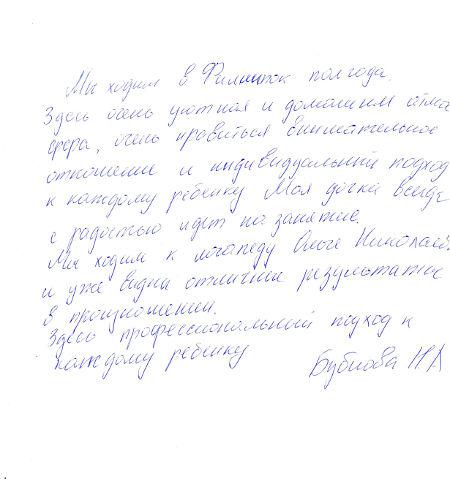 Мы ходим в Филиппок полгода.
Здесь очень уютная и домашняя атмо
сфера, очень нравиться внимательное
отношение и индивидуальный подход
к каждому ребенку Моя дочка всегда
с радостью идет на занятие.
Мы ходим к логопеду Ольге Николаев.
и уже видны отличные результаты
в произношении.
Здесь профессиональный подход к
каждому ребенку
Бубнова Н А